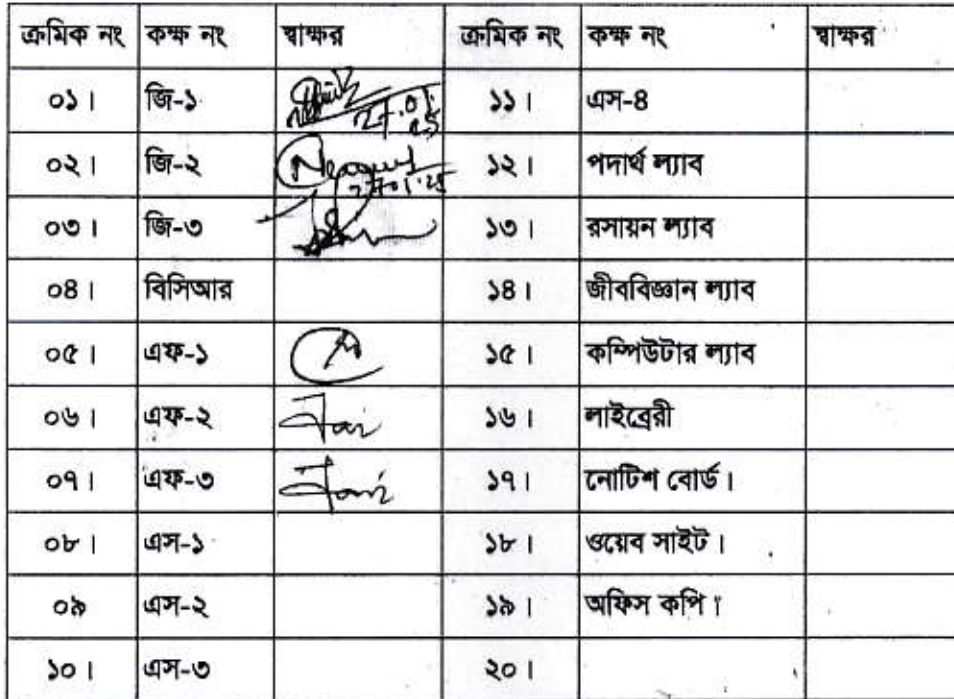 ক্রমিক নং কক্ষ নং স্বাক্ষর ক্রমিক নং কক্ষ নং স্বাক্ষর
০১। জি-১ 27.01.25 ১১। এস-৪
০২। জি-২ 27.01.25 ১২। পদার্থ ল্যাব
০৩। জি-৩ ১৩। রসায়ন ল্যাব
০৪। বিসিআর ১৪। জীববিজ্ঞান ল্যাব
০৫। এফ-১ ১৫। কম্পিউটার ল্যাব
০৬। এফ-২ ১৬। লাইব্রেরী
০৭। এফ-৩ ১৭। নোটিশ বোর্ড।
০৮। এস-১ ১৮। ওয়েব সাইট।
০৯ এস-২ ১৯। অফিস কপি।
১০। এস-৩ ২০।